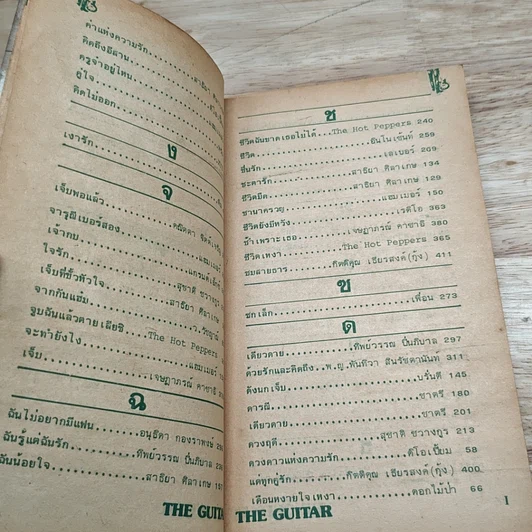 ค่าแห่งความรัก
คิดถึงอีสาน
ครูจ๋าอยู่ไหน
คู่ใจ
คิดไม่ออก
ง
เงารัก
จ
เจ็บพอแล้ว
จารุณีเบอร์สอง
เจ้ากบ
ใจรัก
เจ็บที่ขั้วหัวใจ สุชาติ ชวางกูร
จากกันแฮ่ม สาธิยา ศิลาเกษ
จูบฉันแล้วตายเสียซิ
จะทำยังไง The Hot Peppers
เจ็บ เจษฎาภรณ์ คาซาธิ
ฉ
ฉันไม่อยากมีแฟน อนุธิดา กองราพงษ์
ฉันรู้แต่ฉันรัก ทิพย์วรรณ ปิ่นภิบาล
ฉันน้อยใจ สาธิยา ศิลาเกษ
THE GUITAR
ช
ชีวิตฉันขาดเธอไม่ได้ The Hot Peppers 240
ชีวิต อินโนเซ้นท์ 259
ชื่นรัก เอเบอร์ 209
ชะตารัก สาธิยา ศิลาเกษ 134
ชีวิตมืด สาธิยา ศิลาเกษ 127
ชานาครวญ แฮมเมอร์ 150
ชีวิตยังมีหวัง เรดิโอ 363
ช้ำเพราะเธอ เจษฎาภรณ์ คาซาธิ 380
ชีวิตเหงา The Hot Peppers 365
ชมลายธาร กิตติคุณ เชียรสงค์(กุ้ง) 411
ซ
ซกเล็ก เพื่อน 273
ด
เดียวดาย ทิพย์วรรณ ปิ่นภิบาล 297
ด้วยรักและคิดถึง พ.ญ.พันทิวา สินรัชตานันท์ 311
ดังนกเจ็บ บรั่นดี 145
ดารณี ชาตรี 213
เดียวดาย ชาตรี 201
ดวงฤดี สุชาติ ชวางกูร 227
ดวงดาวแห่งความรัก ดิโอเปี้ยม 58
แด่ทุกคู่รัก กิตติคุณ เชียรสงค์(กุ้ง) 400
เดือนหงายใจเหงา ดอกไม้ป่า 66
THE GUITAR 1